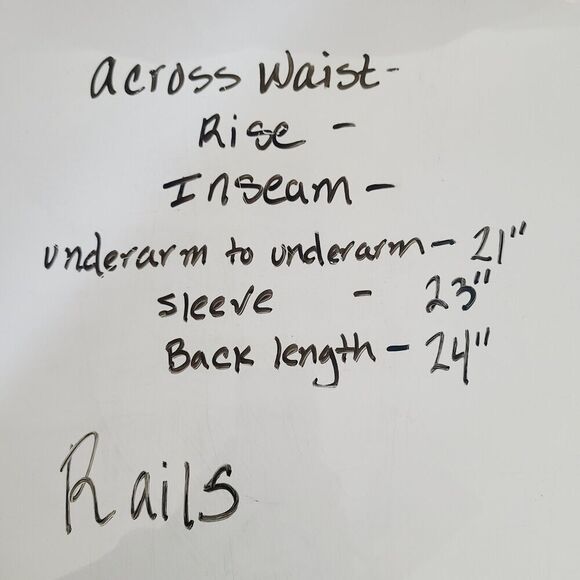 Across Waist-
Rise -
Inseam -
underarm to underarm - 21"
sleeve - 23"
Back length - 24"
Rails